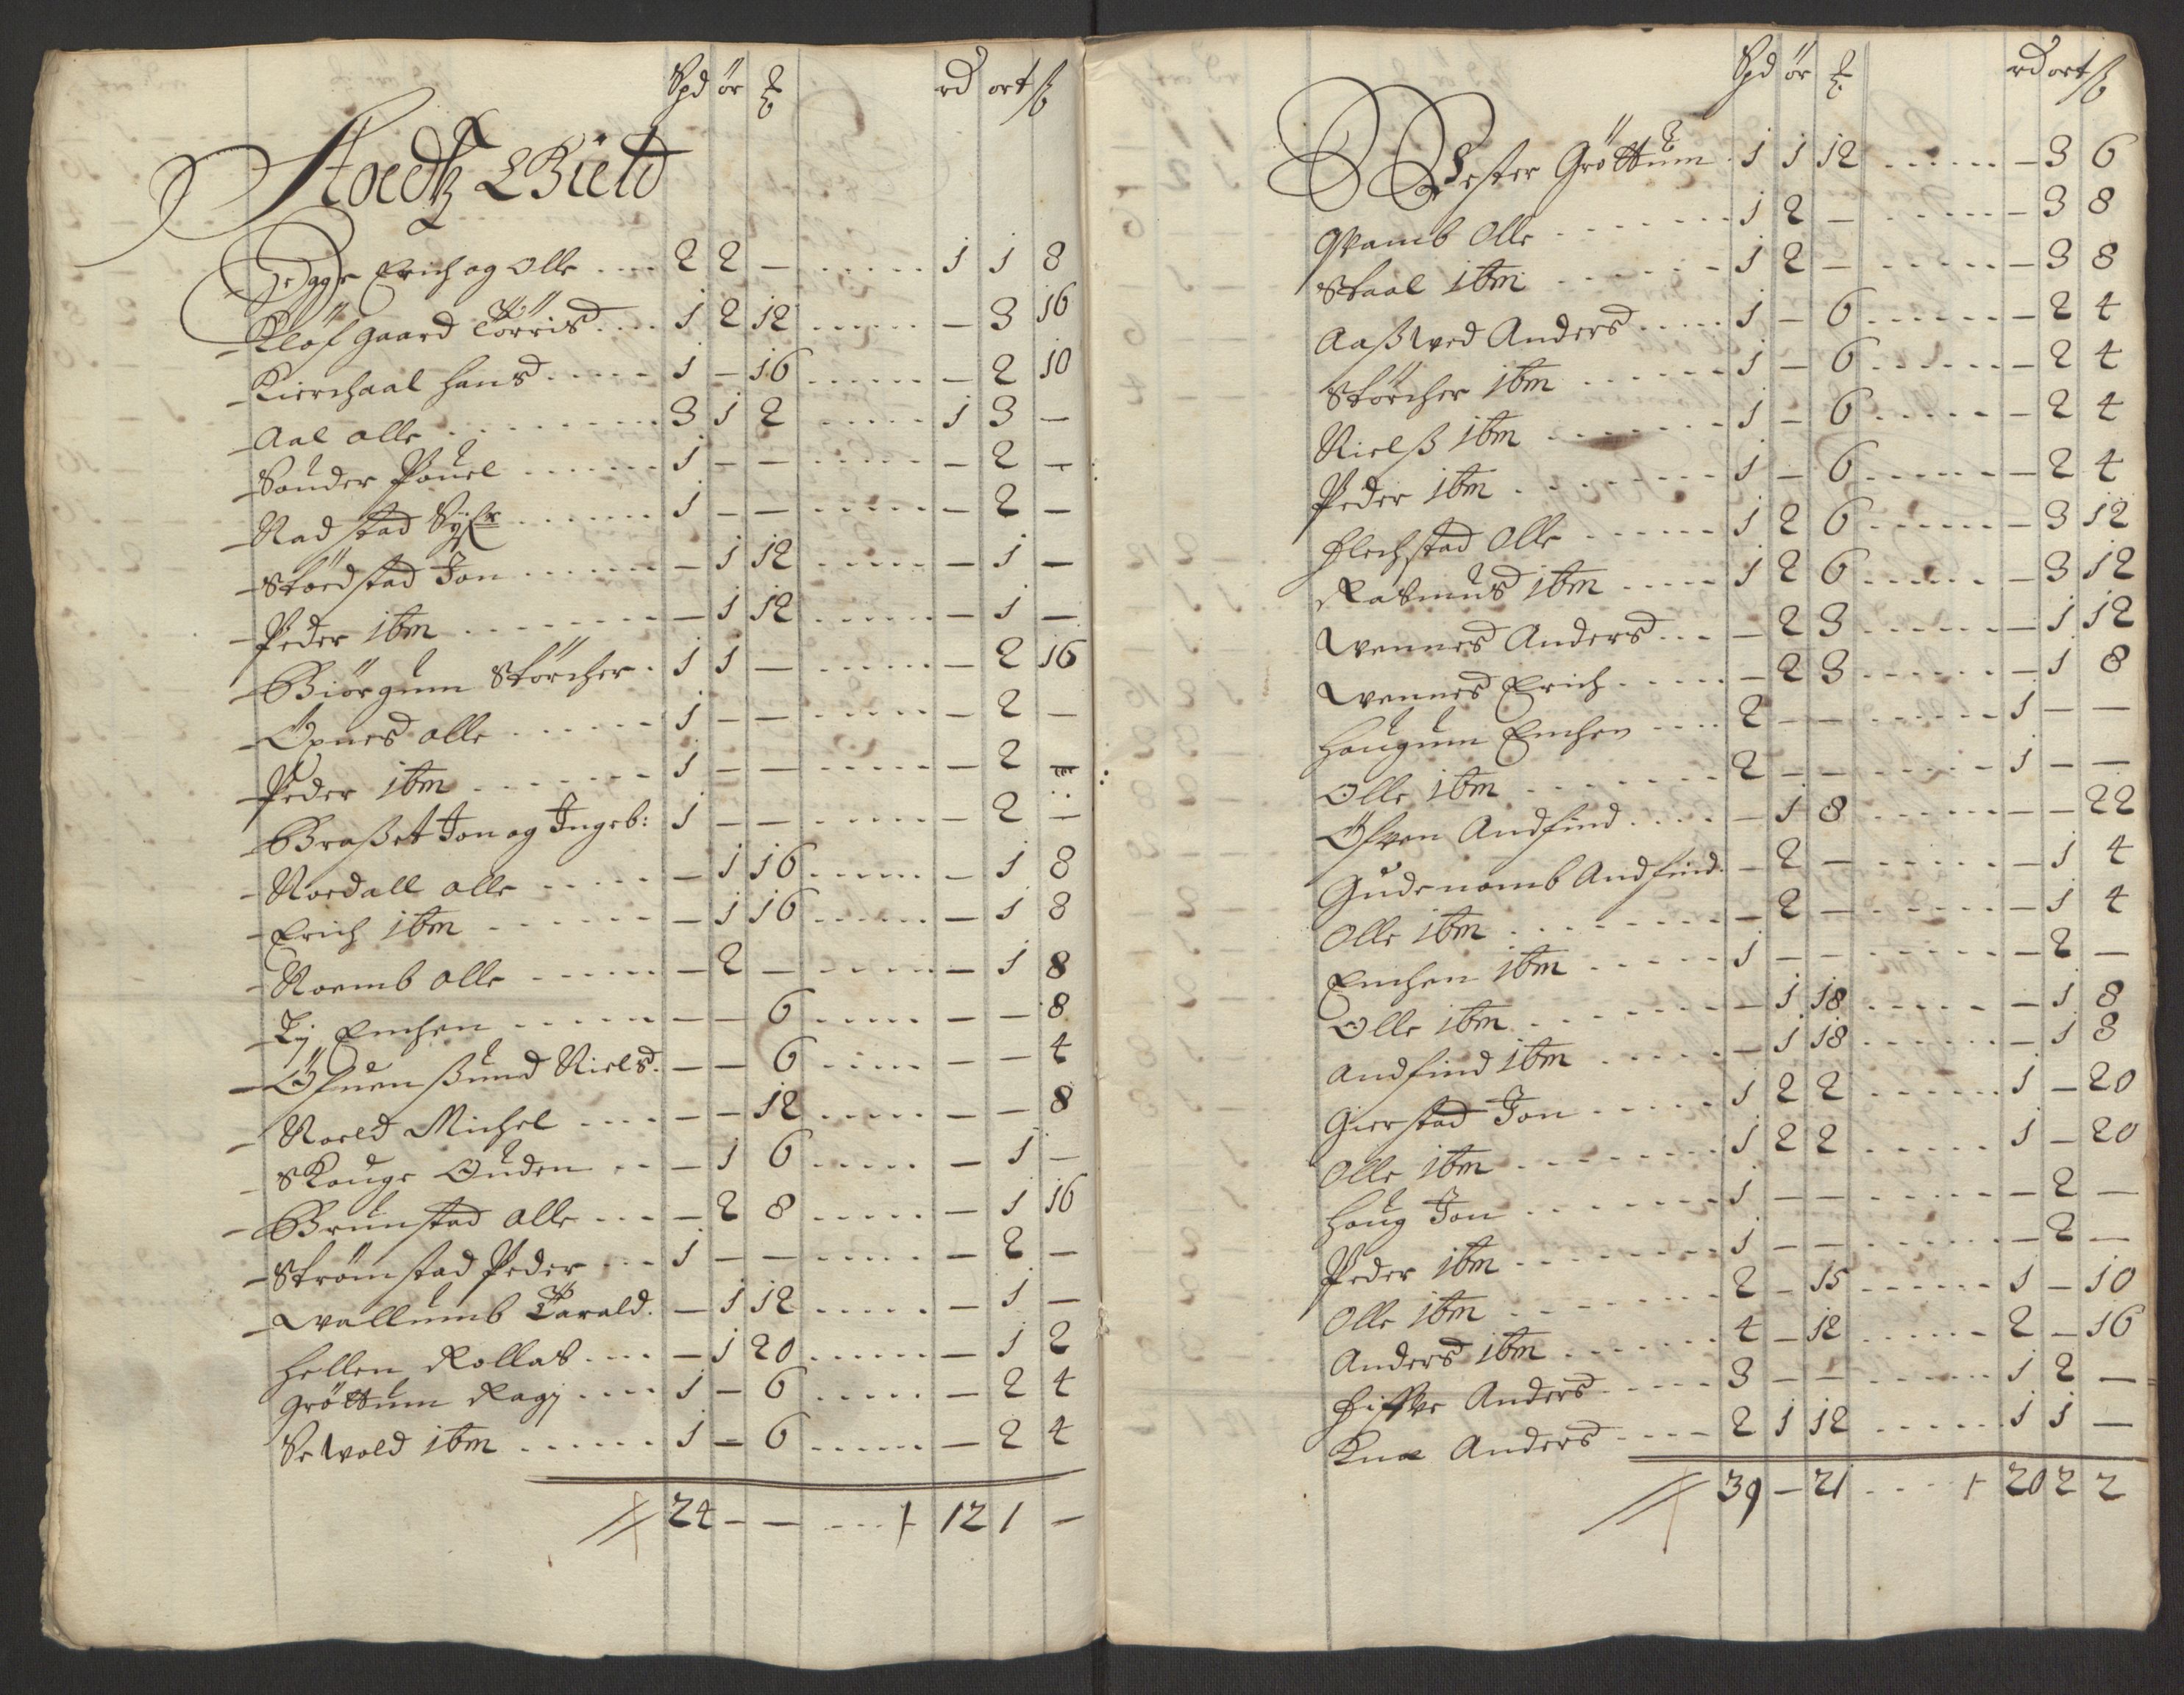 Spd ör ₰ rd ort ß
Stoedtz Gield
Hegge Erich og Olle .... 2 2 — ..... 1 1 8
Klöfgaard Törris .... 1 2 12 ...... — 3 16
Kirchaal Hans ..... 1 — 16 ...... — 2 10
Aal olle ........ 3 1 2 ..... 1 3 —
Sönder Pouel ....... 1 — — ..... — 2 —
Nadstad Syfr ...... 1 — — ..... — 2 —
Stordstad Jon ...... — 1 12 ..... — 1 —
Peder ibm ........ — 1 12 ...... — 1 —
Biörgum Störcher . 1 1 — ...... — 2 16
Öpnes olle ...... 1 — — ..... — 2 —
Peder ibm ...... 1 — — ..... — 2 —
Braßet Jon og Ingeb: 1 — — ..... — 2 —
Nordall olle ..... — 1 16 ..... — 1 8
Erich ibm ...... — 1 16 ..... — 1 8
Noemb olle ..... — 2 — ..... — 1 8
Ly Emhen ...... — — 6 ..... — — 8
Öfuensund Niels . — — 6 ..... — — 4
Noeld Michel .... — — 12 ..... — — 8
Skouge Ouden .. — 1 6 ..... — 1 —
Brunstad olle ... — 2 8 ..... — 1 16
Strömstad Peder ... 1 — — ..... — 2 —
Wallumb Tarald . — 1 12 ..... — 1 —
Hellen Rollas .... — 1 20 ...... — 1 2
Gröttum Ragj .... 1 — 6 ..... — 2 4
Sewold ibm ...... 1 — 6 ..... — 2 4
24 — — .... 12 1 —
Spd ör ₰ rd ort ß
Vester Gröttum . 1 1 12 ...... — 3 6
Qvamb Olle ....... 1 2 — ...... — 3 8
Staal ibm ...... 1 2 — ...... — 3 8
Aaßwed Anders ..... 1 — 6 ...... — 2 4
Störcher ibm ...... 1 — 6 ...... — 2 4
Nielß ibm ....... 1 — 6 ..... — 2 4
Peder ibm ........ 1 — 6 ..... — 2 4
Flechstad Olle ..... 1 2 6 ...... — 3 12
Rasmus ibm ..... 1 2 6 ...... — 3 12
Wennes Anders ... — 2 3 ...... — 1 12
Wennes Erich ..... — 2 3 ...... — 1 8
Hougum Emhen .... 2 — — ...... 1 — —
Olle ibm ....... 2 — — ...... 1 — —
Öfren Andfind .... — 1 8 ...... — — 22
Gudenomb Andfind . — 2 — ..... — 1 4
Olle ibm ....... — 2 — ...... — 1 4
Emhen ibm ..... 1 — — ..... — 2 —
Olle ibm ....... — 1 18 ..... — 1 8
Andfind ibm ..... — 1 18 ...... — 1 8
Gierstad Jon ..... 1 2 2 ...... 1 — 20
Olle ibm ........ 1 2 2 ..... 1 — 20
Houg Jon ....... 1 — — ..... — 2 —
Peder ibm ....... 1 — — ..... — 2 —
Olle ibm ....... 2 — 15 ...... 1 — 10
Anders ibm ...... 4 — 12 ..... 2 — 16
Anders ..... 3 — — ...... 1 2 —
Knæ Anders .... 2 1 12 ..... 1 1 —
39 — 21 .... 20 2 2